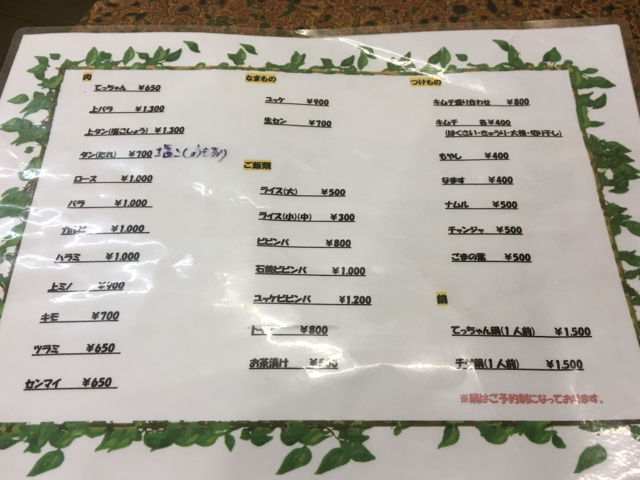 肉
てっちゃん ¥650
上バラ ¥1,300
上タン(塩こしょう) ¥1,300
タン(たれ) ¥700
ロース ¥1,000
バラ ¥1,000
カルビ ¥1,000
ハラミ ¥1,000
上ミノ
キモ ¥700
ツラミ ¥650
センマイ ¥650
なまもの
ユッケ ¥900
生セン ¥700
ご飯類
ライス(大) ¥500
ライス(小)(中) ¥300
ビビンバ ¥800
石焼ビビンバ ¥1,000
ユッケビビンバ ¥1,200
¥800
お茶漬け
つけもの
キムチ盛り合わせ ¥800
キムチ 各¥400
(はくさい・きゅうり・大根・切り干し)
もやし ¥400
なます ¥400
ナムル ¥500
チャンジャ ¥500
ごまの葉 ¥500
鍋
てっちゃん鍋(1人前) ¥1,500
チゲ鍋(1人前) ¥1,500
※鍋はご予約制になっております。